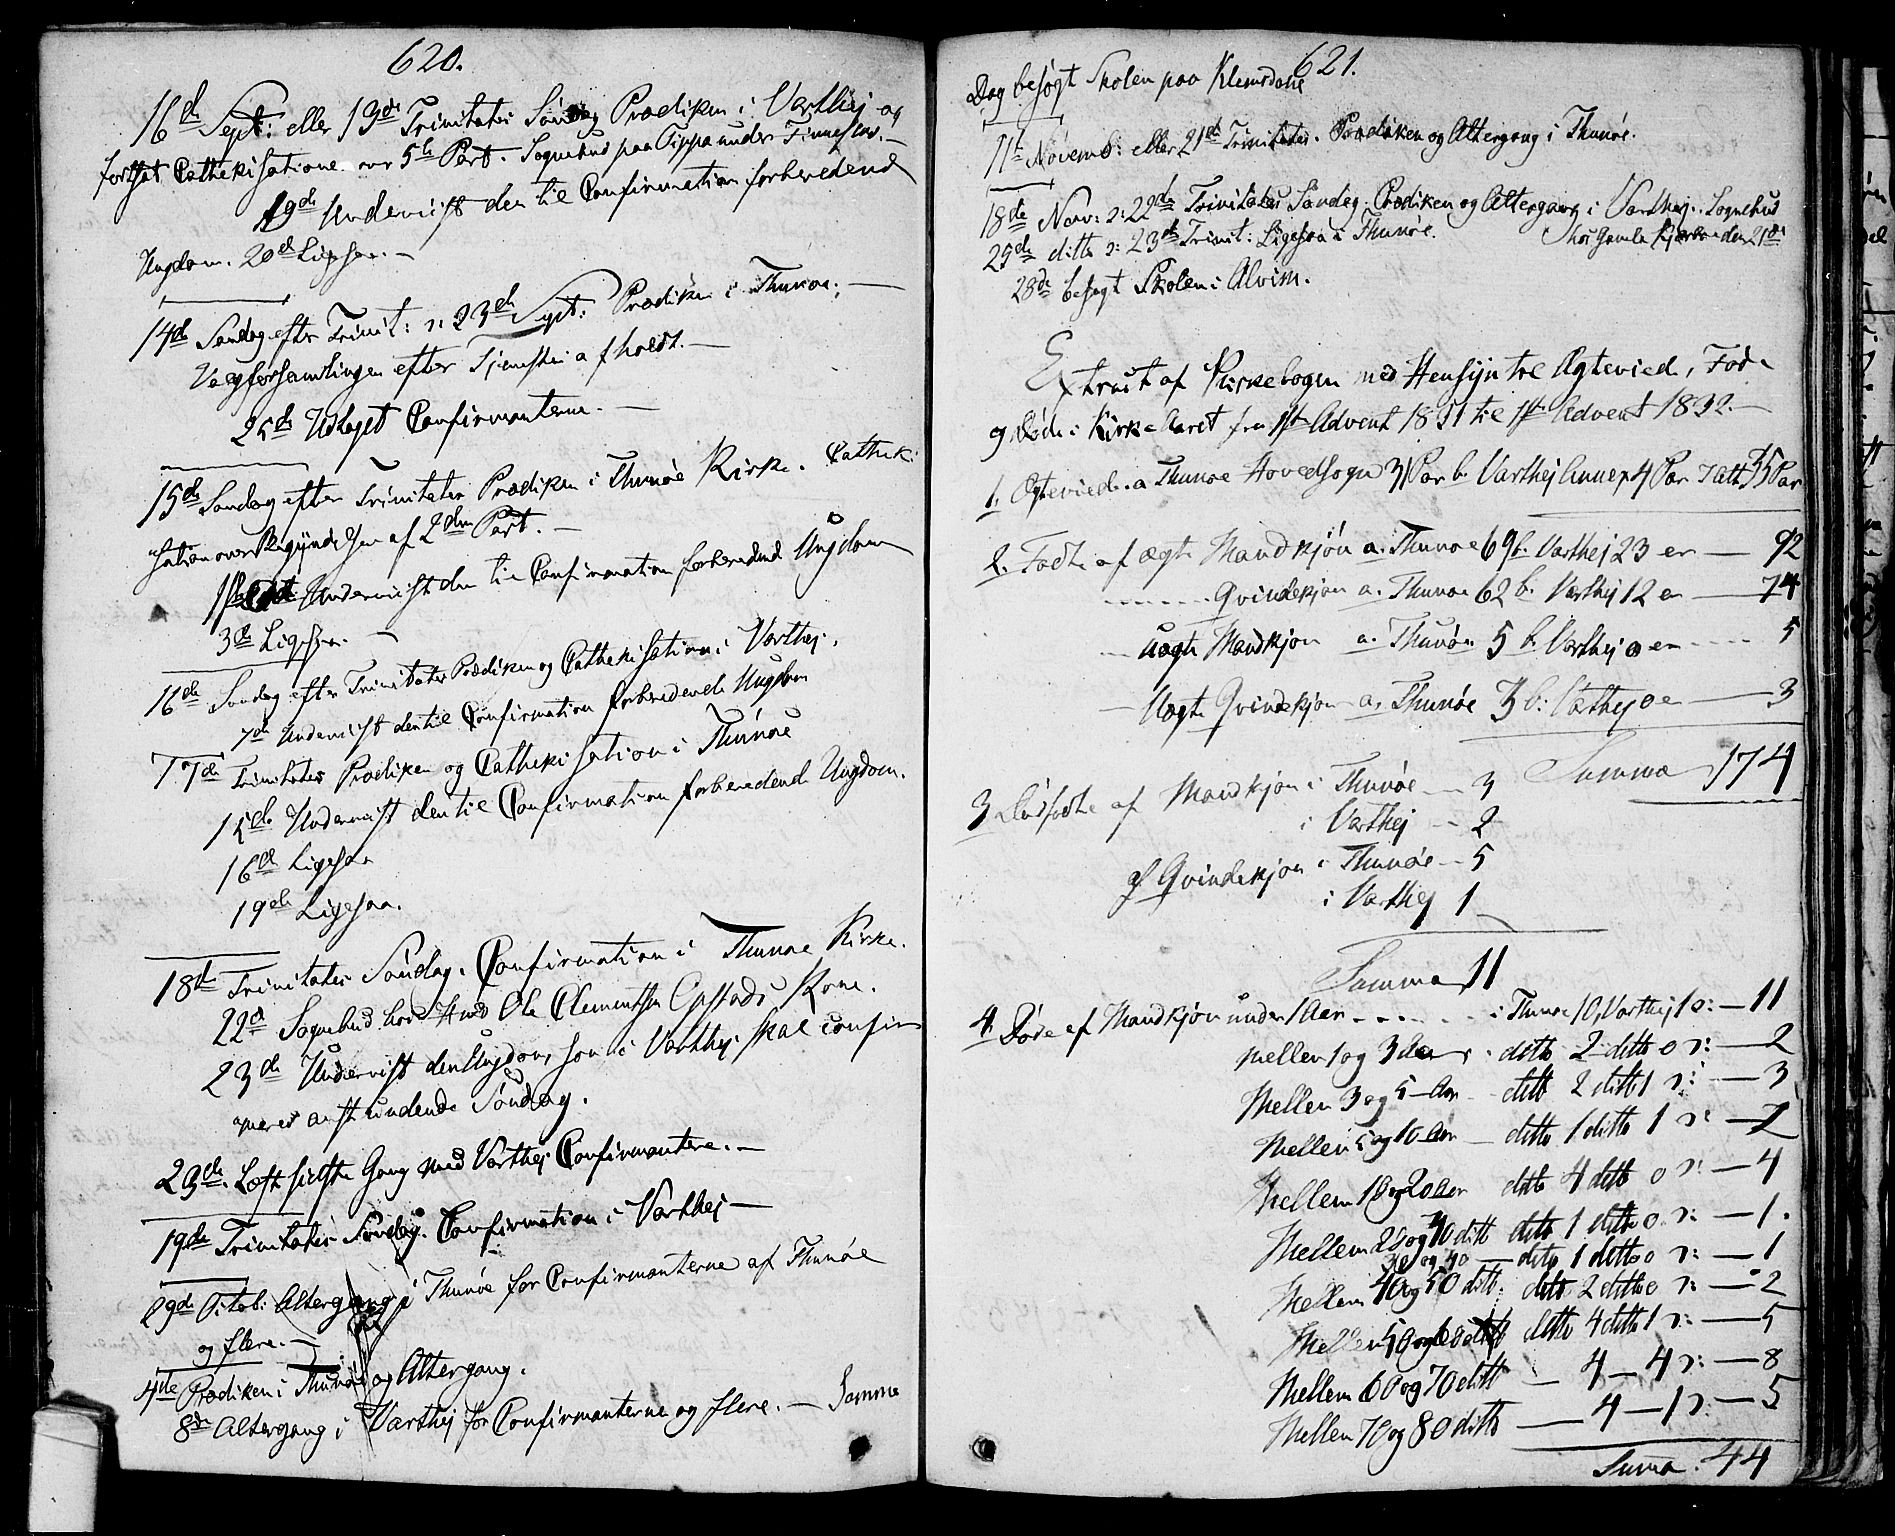 620.
16de Sept: eller 13de Trinitatis Søndag Prædiken i Varthej og
fortsat Cathekisationen over 5te Part. Sognebud paa Tippa under Finnestad.—
19de Underviist den til Confirmation forberedend
Ungdom. 20de Ligesaa.—
14de Søndag efter Trinit: ɔ: 23de Sept: Prædiken i Thunøe.—
Valgforsamlingen efter Tjenesten afholdt.—
25de Udtaget Confirmanterne.—
15de Søndag efter Trinitatis Prædiken i Thunøe Kirke. Catheki
sation over Begyndelsen af 2den Part.—
1ste Underviist den til Confirmation forberedend Ungdom
3de Ligesaa.—
16de Søndag efter Trinitatis Prædiken og Cathekisation i Varthej.
7de Underviist den til Confirmation forberedende Ungdom
17de Trinitatis Prædiken og Cathekisation i Thunøe
15de Underviist den til Confirmation forberedend Ungdom.
16de Ligesaa
19de Ligesaa.
18de Trinitatis Søndag. Confirmation i Thunøe Kirke.
22de Sognebud hos Ole Clementsen Opstads Kone.
23de Underviist den Ungdom, som i Varthej skal confir
meres anstundende Søndag.
23de. Læst sidste Gang med Varthej Confirmantere.—
19de Trinitatis Søndag. Confirmation i Varthej—
29de Octob: Altergang i Thunøe for Confirmanterne af Thunøe
og flere.—
4de Prædiken i Thunøe og Altergang.
8de Altergang i Varthej for Confirmanterne og flere.— Samme
621.
Dag besøgt Skolen paa Klemsdahl
11te Novemb: eller 21de Trinitatis. Prædiken og Altergang i Thunøe.
18de Nov: ɔ: 22de Trinitatis Søndag. Prædiken og Altergang i Varthej. Sognebud
hos Gamle den 21de
25de ditto ɔ: 23de Trinit: Ligesaa i Thunøe.
28de besøgt Skolen i Alvim.
Extract af Kirkebogen med Hensyn til Ægteviede, Fød-
og Døde i Kirke-Aaret fra 1ste Advent 1831 til 1ste Advent 1832.—
1. Ægteviede. a Thunøe Hovedsogn 31 Par b. Varthej Annex 4 Par I alt 35 Par
2. Fødte af ægte Mandkjøn a. Thunøe 69 b. Varthej 23 er — 92
Qvindekjøn a. Thunøe 62 b. Varthej 12 er — 74
— Uægte Mandkjøn a. Thunøe 5 b. Varthej o er — 5
— Uægte Qvindekjøn a. Thunøe 3 b: Varthej o er — 3
Summa 174
3 Dødfødte af Mandkjøn i Thunøe — 3
i Varthej — 2
af Qvindekjøn i Thunøe — 5
i Varthej 1
Summa 11
4. Døde af Mandkjøn under 1 Aar — i Thunøe 10, Varthej 1 ɔ: — 11
mellem 1 og 3 Aar ditto 2 ditto o ɔ: — 2
Mellem 3 og 5 Aar ditto 2 ditto 1 ɔ: — 3
Mellem 5 og 10 Aar — ditto 1 ditto 1 ɔ: — 2
Mellem 10 og 20 Aar ditto 4 ditto o ɔ: — 4
Mellem 20 og 30 ditto ditto 1 ditto o ɔ: — 1.
30 og 40 — ditto 1 ditto o ɔ: — 1
Mellem 40 og 50 ditto ditto 2 ditto o ɔ: — 2
Mellem 50 og 60 ditto ditto 4 ditto 1 ɔ: — 5
Mellem 60 og 70 ditto — 4 — 4 ɔ: — 8
Mellem 70 og 80 ditto — 4 — 1 ɔ: — 5
Summa. 44